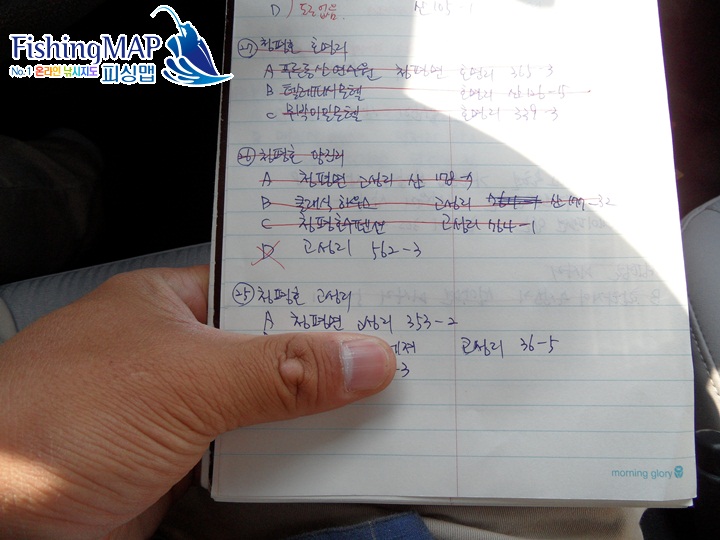 FishingMAP
No.1 온라인 낚시지도 피싱맵
D 도로없음. 산 105-1
27 청평호 호명리
A 푸른동산연수원 청평면 호명리 365-3
B 텔레파시모텔 호명리 산 126-5
C 호명리 339-3
26 청평호
A 청평면 고성리 산 178-4
B 클래식 하우스 고성리 산 177-32
C 청평호수펜션 고성리 564-1
D 고성리 562-3
25 청평호 고성리
A 청평면 고성리 353-2
고성리 36-5
-3
morning glory